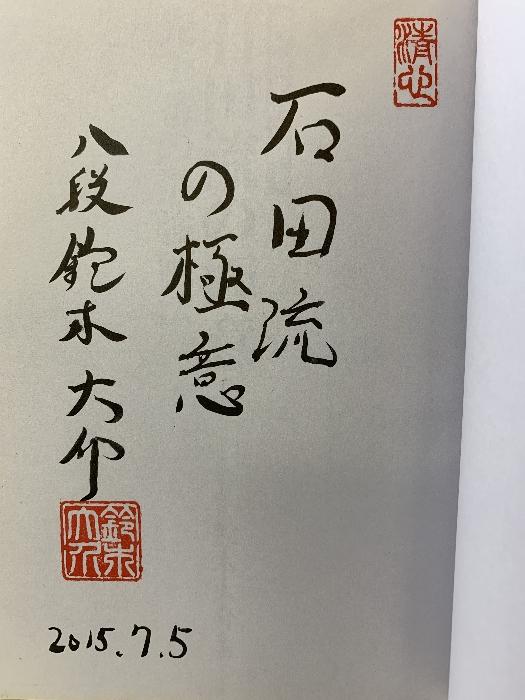 清心
石田流
の極意
八段 鈴木大介
鈴木
大介
2015.7.5